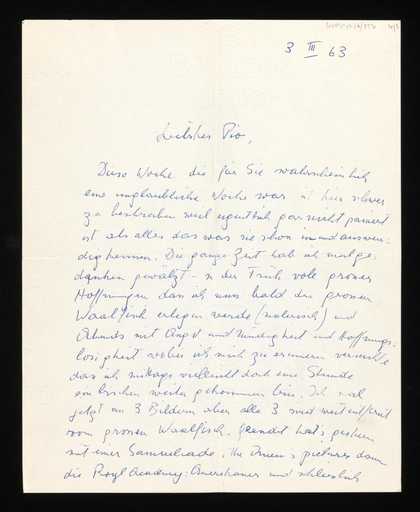 3 III 63
Liebster Pio,
Diese Woche die für Sie wahrscheinlich
eine unglaubliche Woche war ist hier schwer
zu beschreiben weil eigentlich gar nicht passiert
ist als alles das was sie schon in und auswen-
dig kennen. Die ganze Zeit hab ich mat ge-
danken gewälzt - in der Früh voll grosser
Hoffnungen dass ich nun bald den grossen
Waalfisch erlegen werde (malerisch) und
Abends mit Angst und Müdigkeit und Hoffnungs-
losigkeit wobei ich mich zu erinnern versuchte
dass ich mittags vielleicht doch eine Stunde
ein bischen weiter gekommen bin. Ich mal
jetzt an 3 Bildern aber alle 3 sind weit entfernt
vom grossen Waalfisch. geendet hat's gestern
mit einer
die Royal Academy: und schliesslich